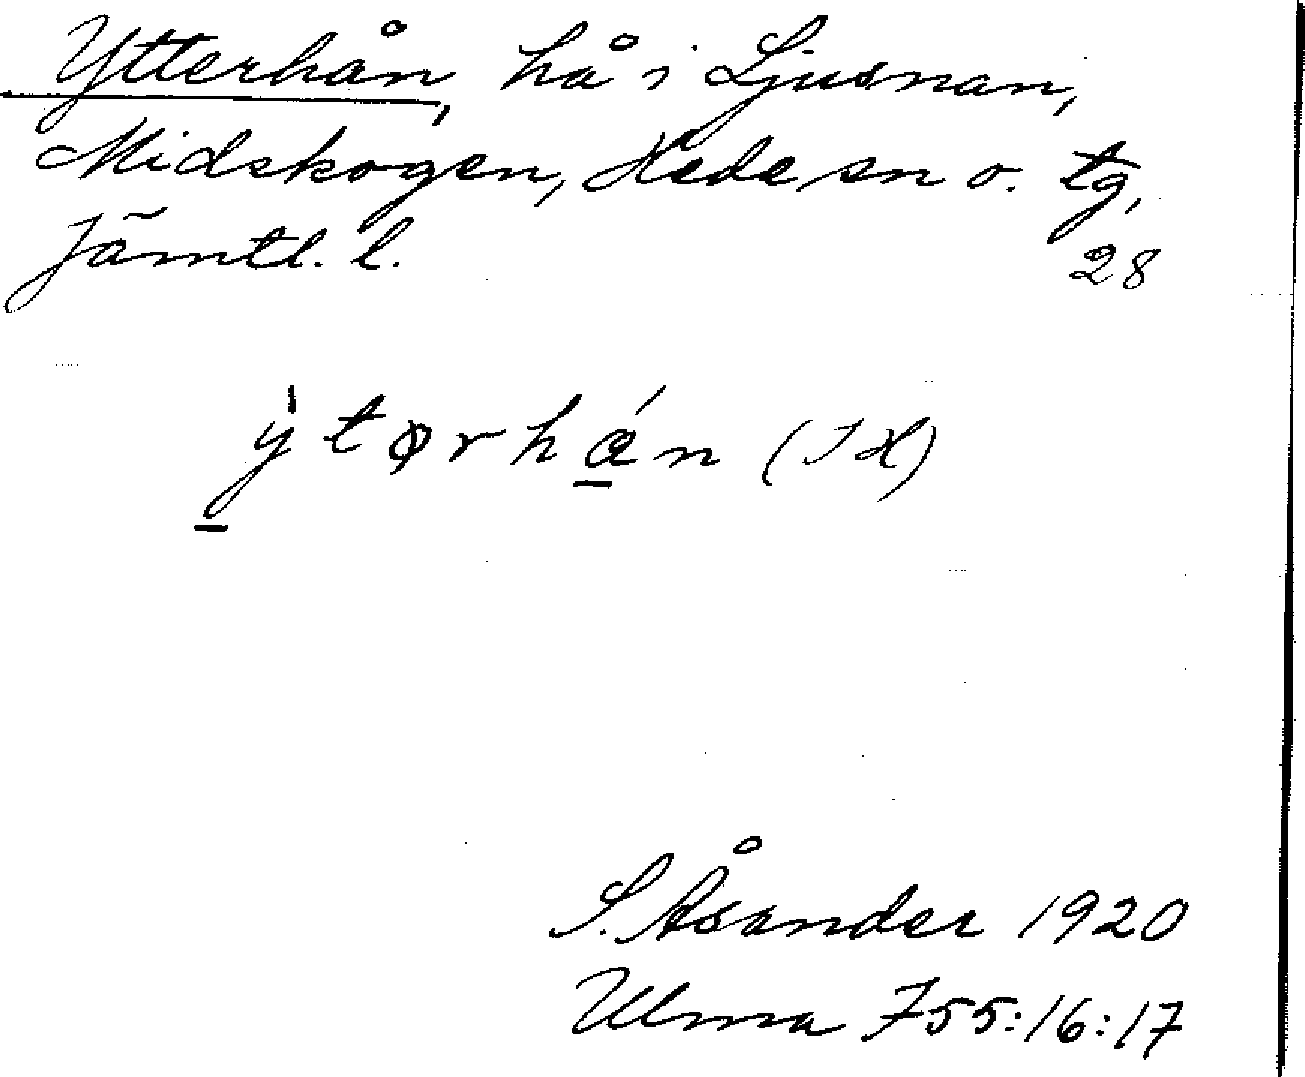 Ytterhån, hå i Ljusnan,
Midskogen, Hede sn o. tg,
Jämtl. l.
28
S. Åsander 1920
Ulma 755:16:17